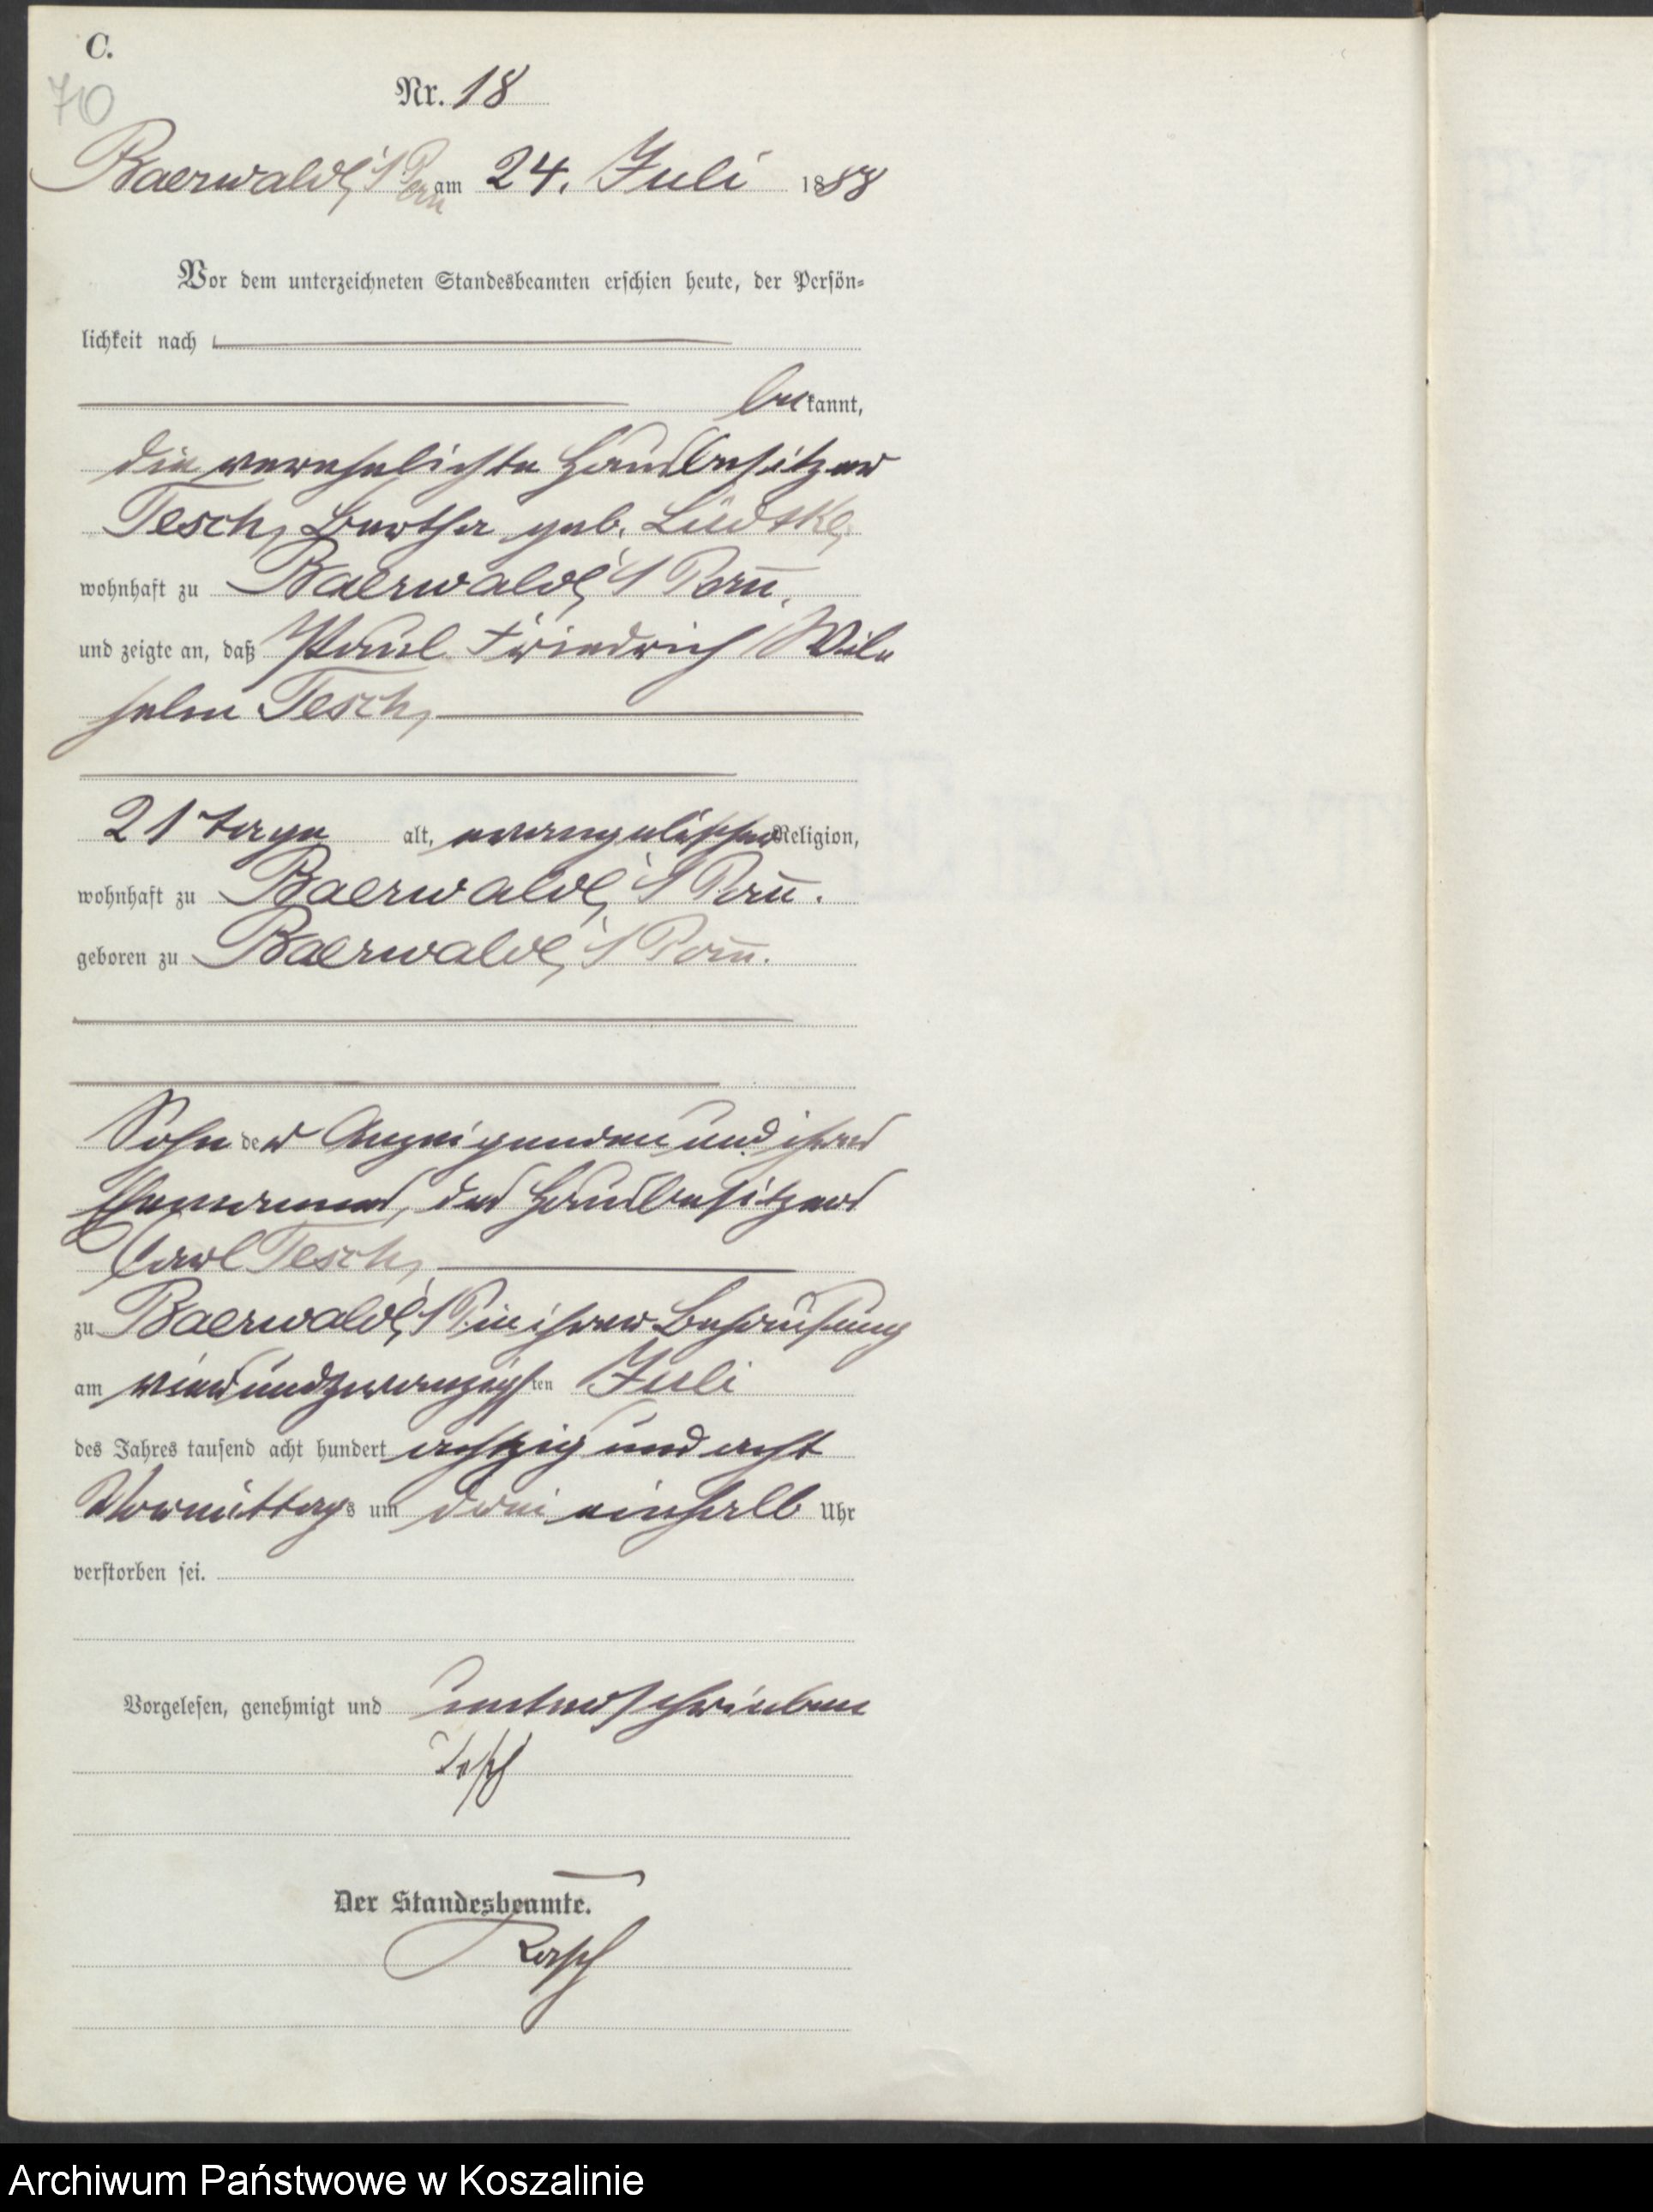 C.
70
Nr. 18
Baerwalde, i/Pom am 24. Juli 1888
Vor dem unterzeichneten Standesbeamten erschien heute, der Persön-
lichkeit nach
bekannt,
die verehelichte Hausbesitzer
Tesch, Bertha geb. Lüdtke,
wohnhaft zu Baerwalde, i/Pom.
und zeigte an, daß Paul Friedrich Wil-
helm Tesch,
21 Tage alt, evangelischer Religion,
wohnhaft zu Baerwalde, i/Pom.
geboren zu Baerwalde, i/Pom.
Sohn der Anzeigenden und ihres
Ehemannes, des Hausbesitzers
Carl Tesch,
zu Baerwalde, i/P in ihrer Behausung
am vierundzwanzigsten Juli
des Jahres tausend acht hundert achtzig und acht
Vormittags um drei einhalb Uhr
verstorben sei.
Vorgelesen, genehmigt und unterschrieben
Der Standesbeamte.
Archiwum Państwowe w Koszalinie